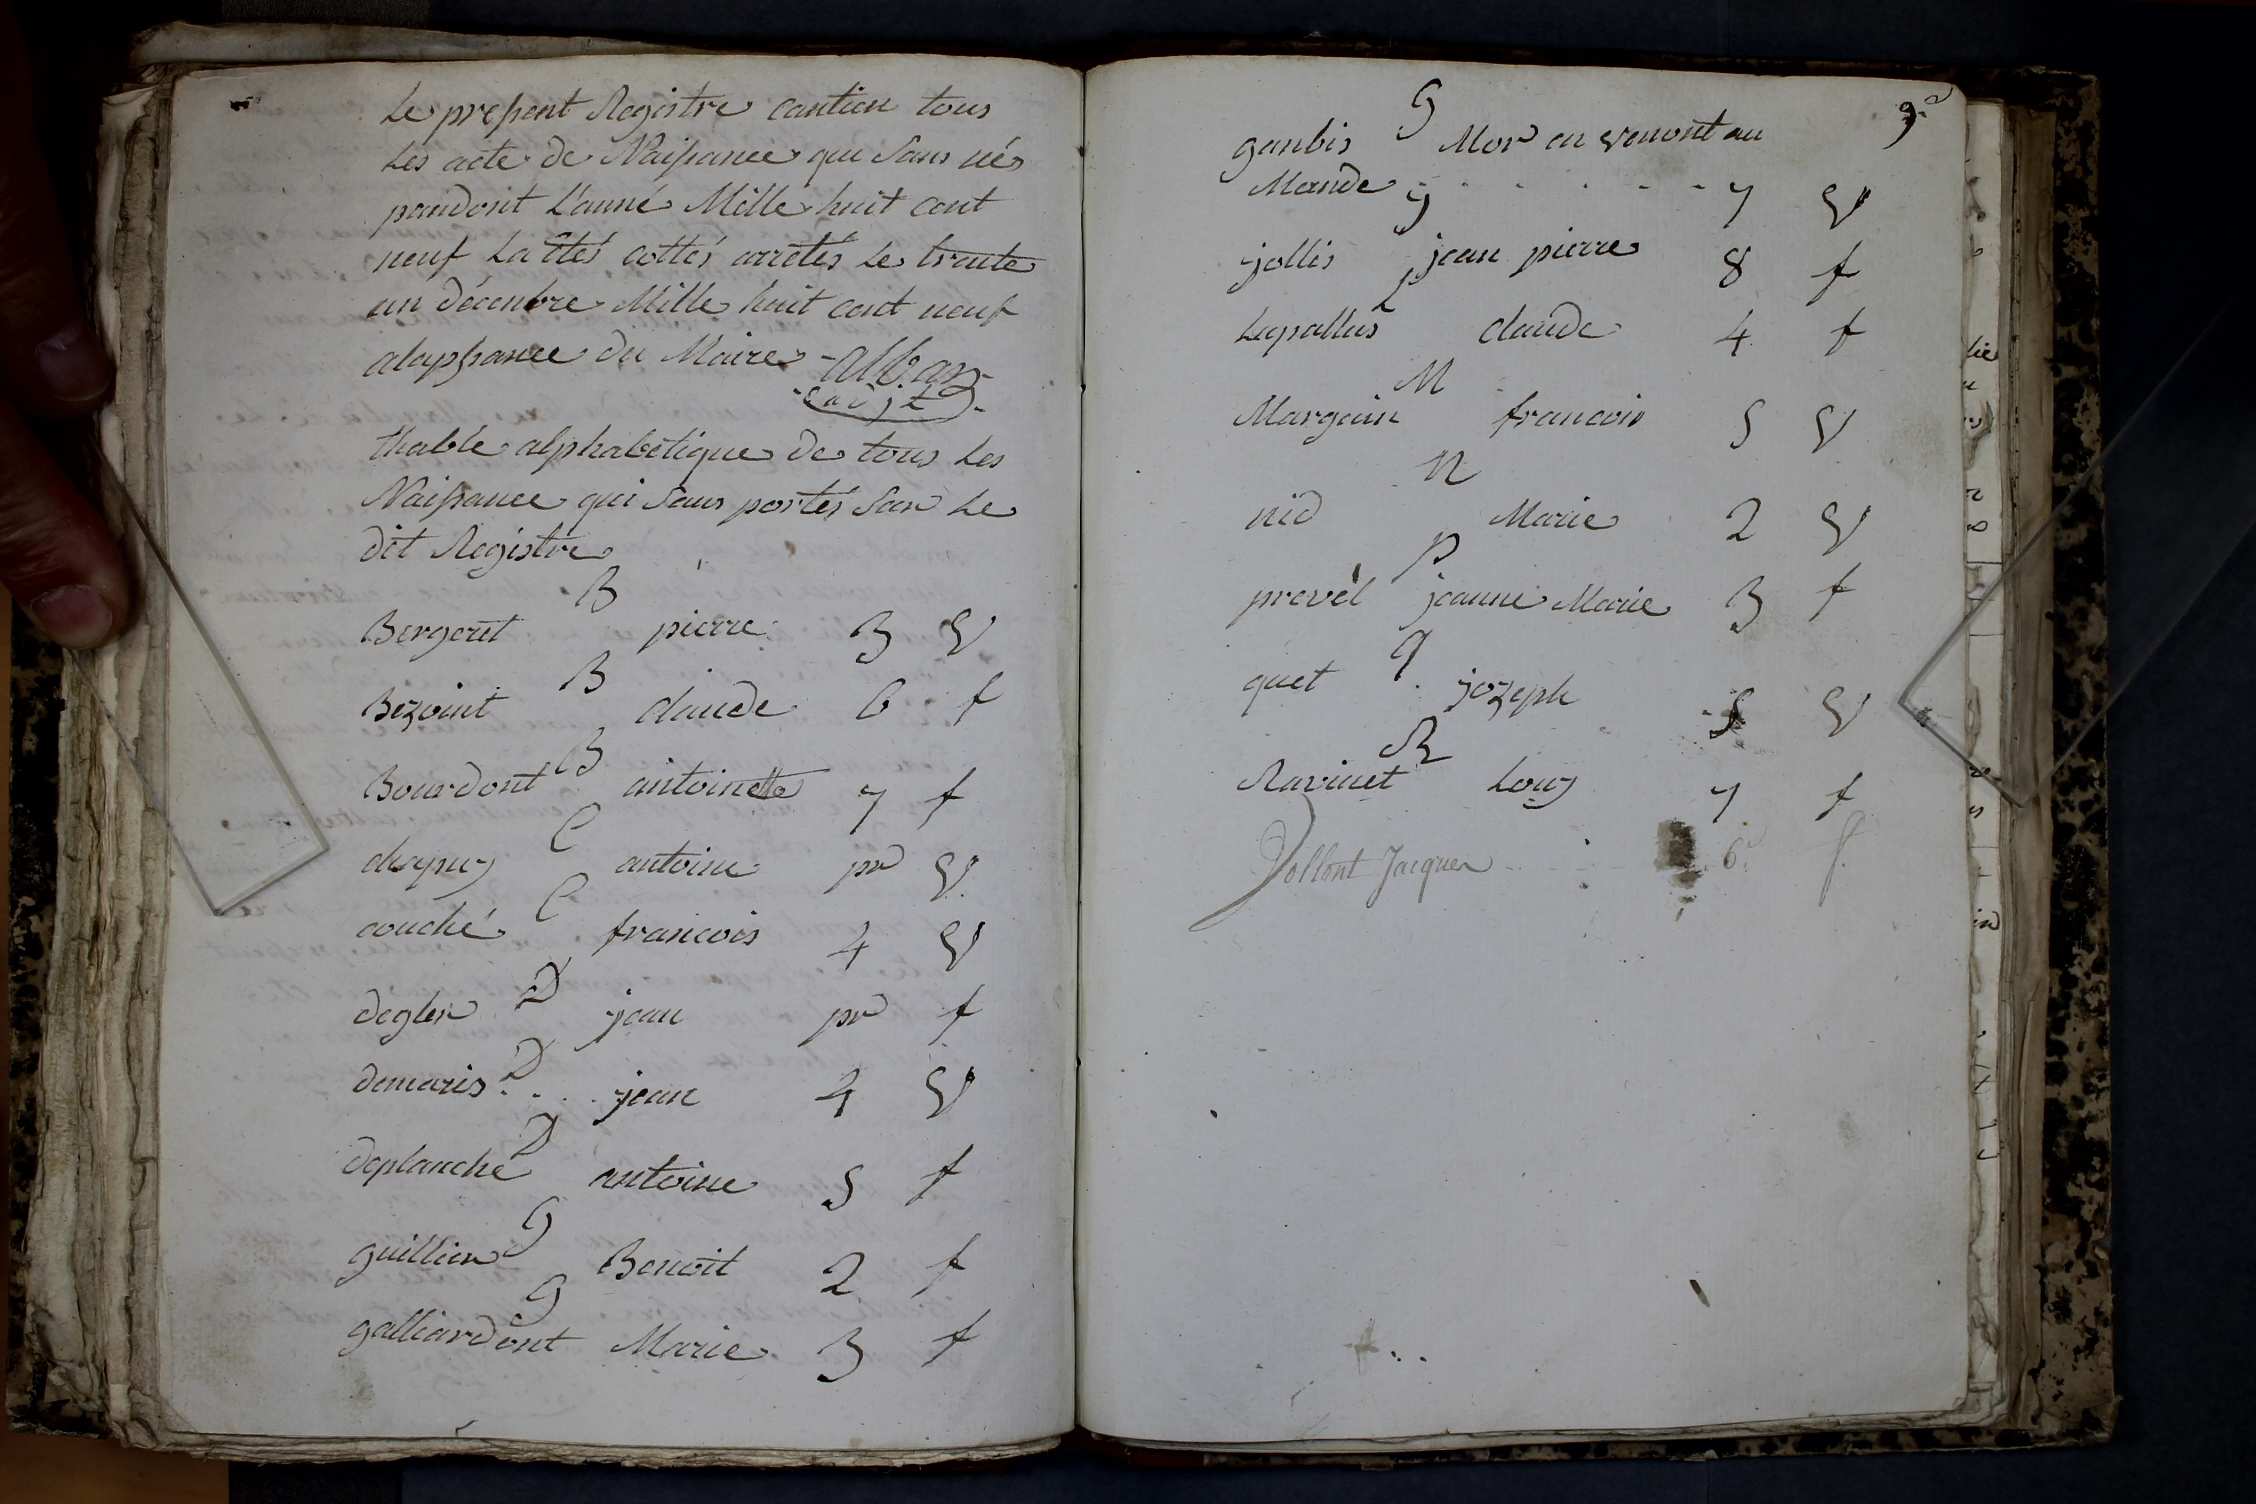 Le present Registre contien tous
Les acte de Naissance que sous nés
pandont L'anné Mille huit cent
neuf La été cottés arretés Le trente
un décenbre Mille huit cent neuf
alassance du Maire Alban
thable alphabétique de tous Les
Naissance qui sous portés sur Le
dit Registre
B
Bergeret pierre 3 V
B
Bezoint claude 6 f
B
Bourdont antoinette 7 f
C
chapuy antoine pr V
C
couché francois 4 V
D
degler jean pr f
D
demaris jean 4 V
D
deplanche antoine 5 f
g
guillien Benoit 2 f
g
galliardont Marie 3 f
9e
g
ganbis Mor en venont au
Monde 7 V
j
jollis jean pierre 8 f
L
Lapallus claude 4 f
M
Margain francois 5 V
N
nid Marie 2 V
p
prevél jeanne Marie 3 f
q
quet jozeph 5 V
R
Ravinet Louy 7 f
Dollont Jacques 6e f.